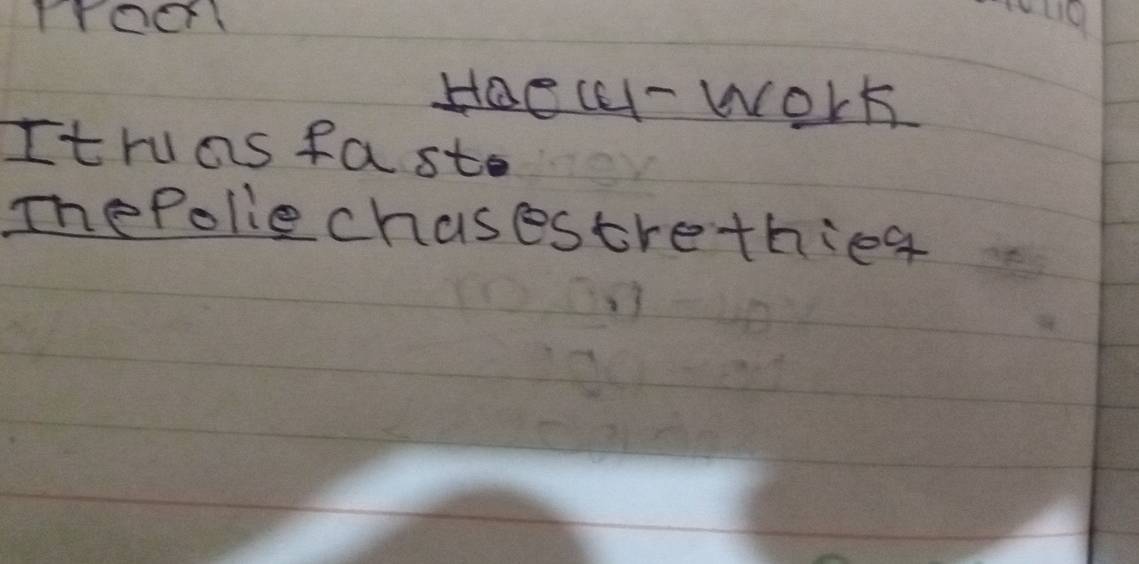 Hoew-Work
Itruns fast.
ThePolie chasesthethief